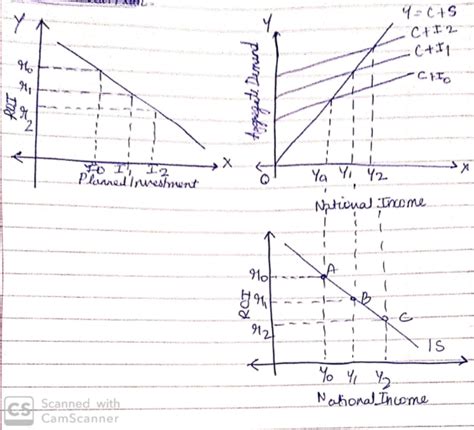 Y
r0
r1
r2
ROI
X
I0 I1 I2
Planned Investment
Y
Y = C+S
C+I2
C+I1
C+I0
Aggregate Demand
O
Y0 Y1 Y2
X
National Income
ROI
r0
r1
r2
A
B
C
IS
Y0 Y1 Y2
National Income
CS Scanned with
CamScanner